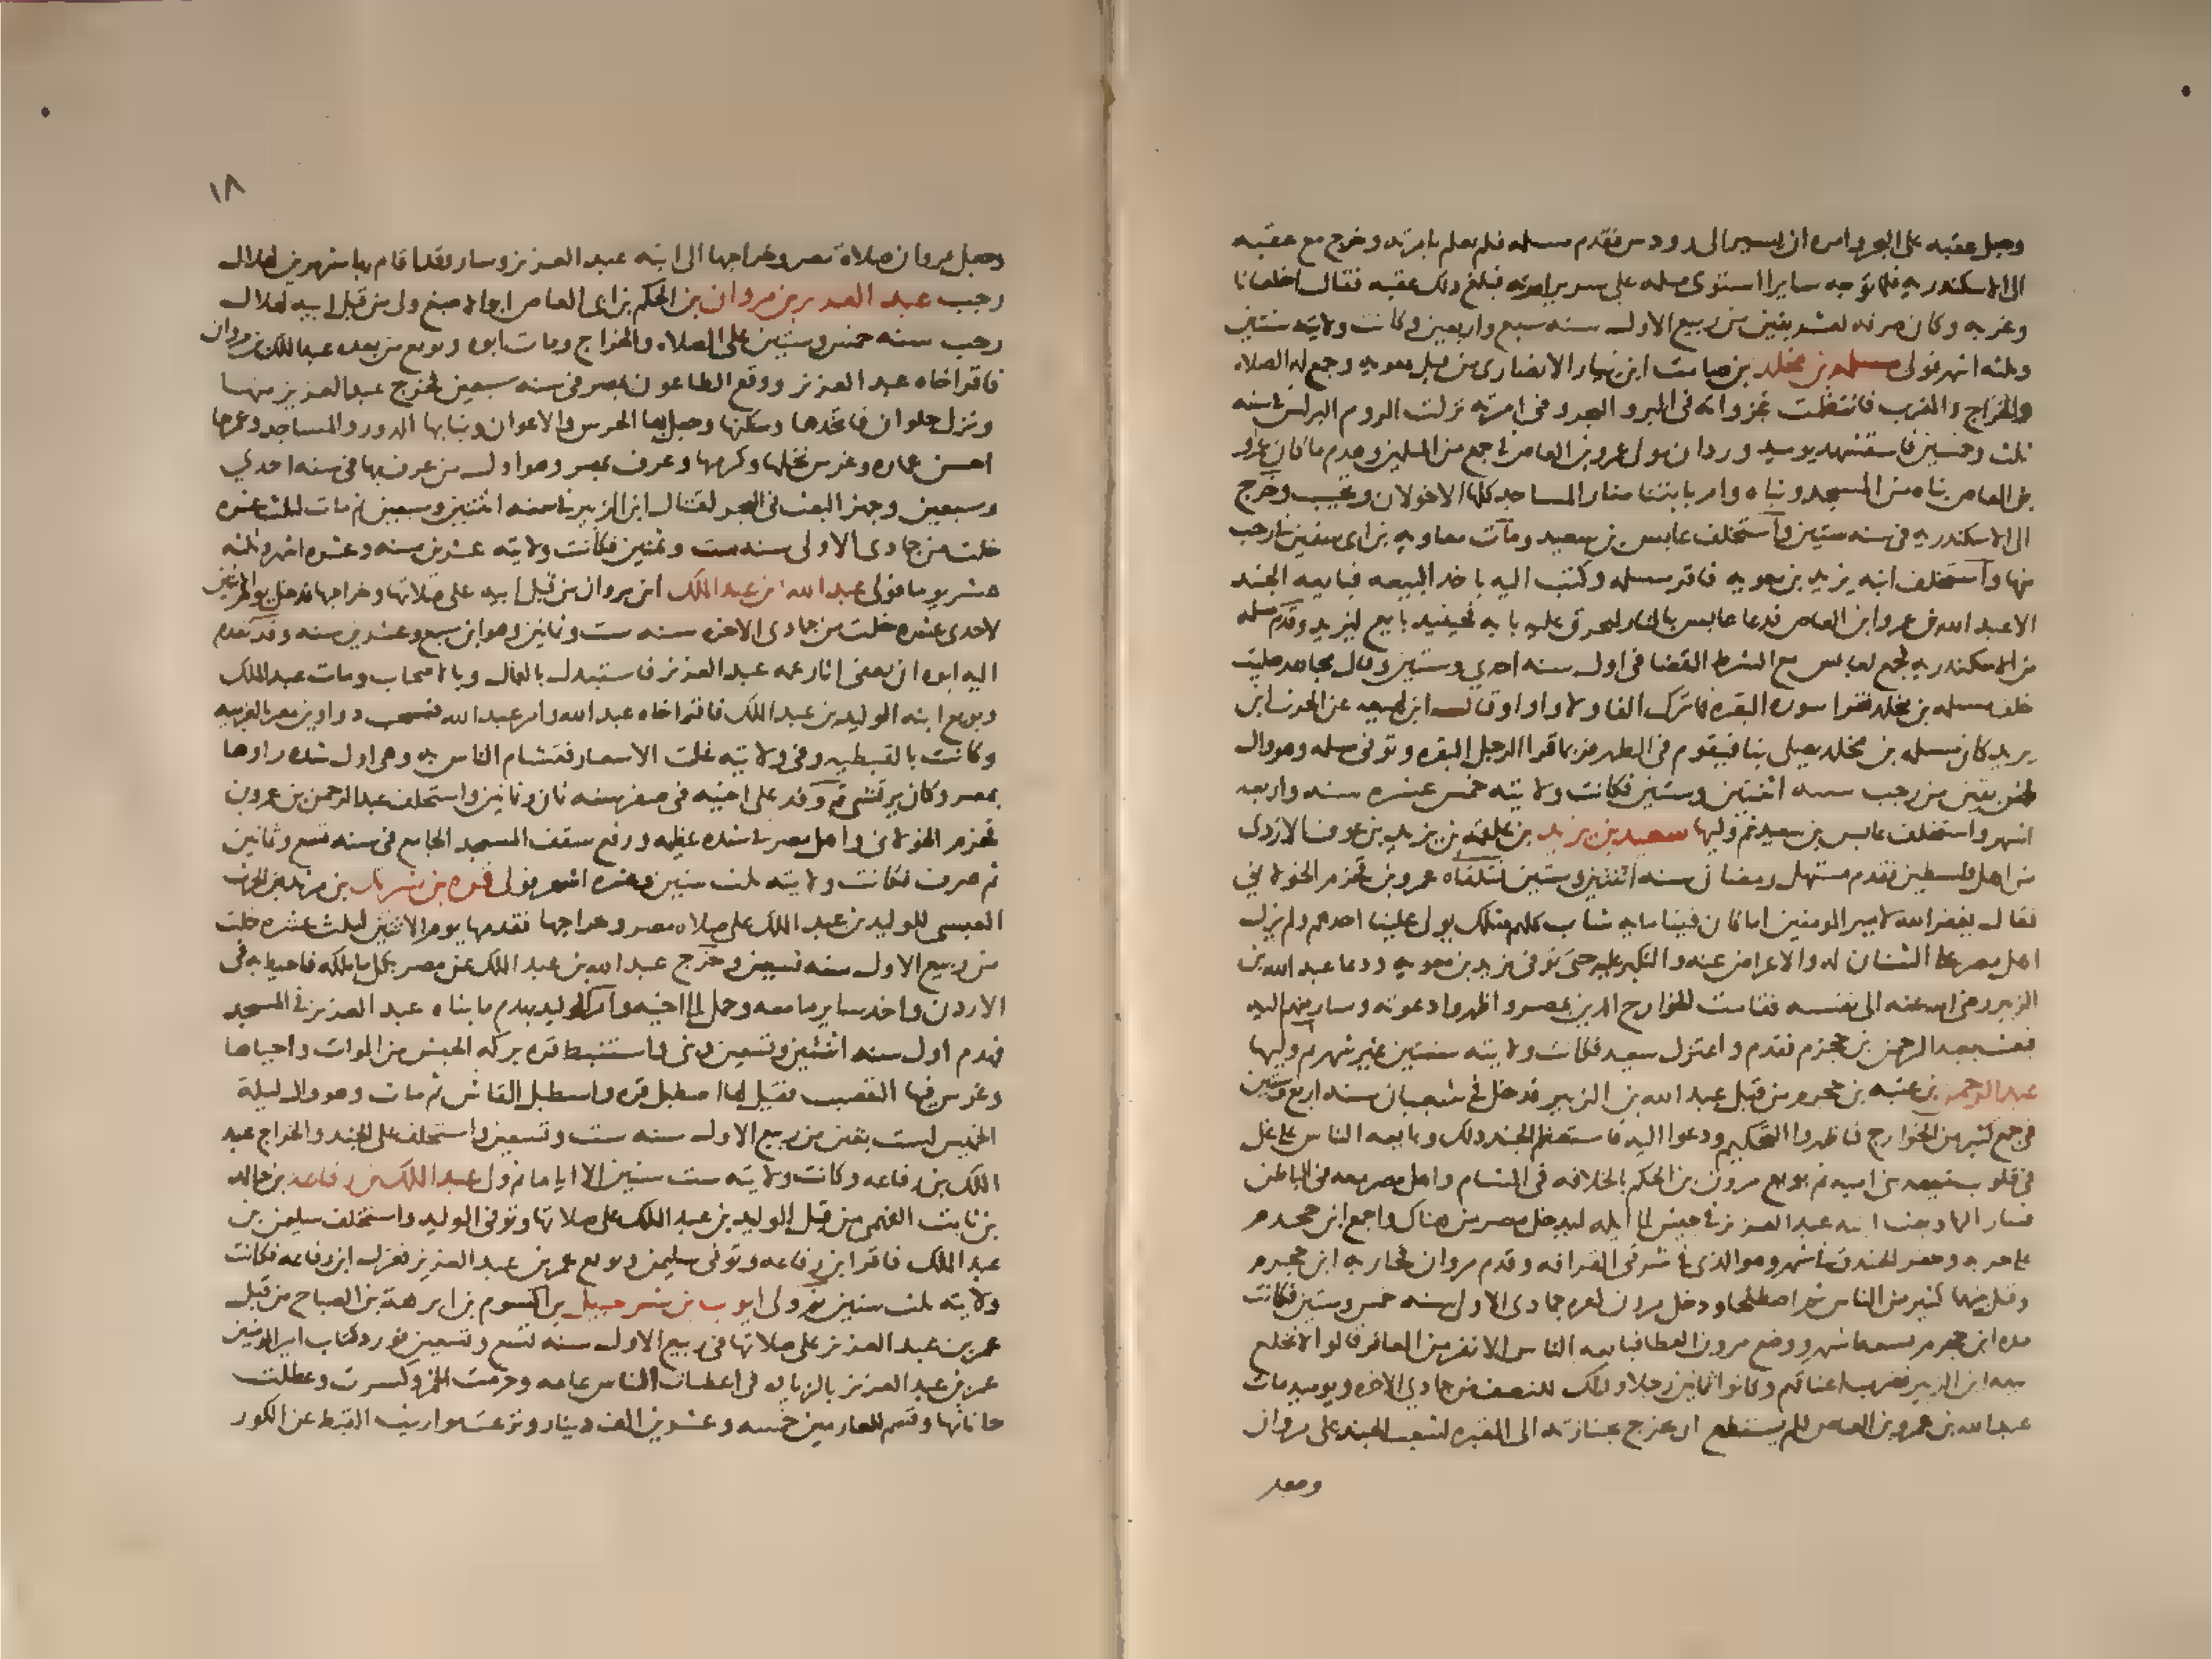 وجعل عقبه على البحر وامره ان يسير الى رودس فقدم مسلمه فلم يعلم بامرته وخرج مع عقبه
الى الاسكندريه فلما توجه سايرا استوى مسلمه على سرير امرته فبلغ ذلك عقبه فقال اخلعانا
وغربه وكان صرفه لعشر بقين من ربيع الاول سنه سبع واربعين وكانت ولايته سنتين
وثلثه اشهر فولى مسلمه بن مخلد بن صامت ابن نيار الانصارى من قبل معويه وجمع له الصلاه
والخراج والمغرب فانتظمت غزواته فى البر والبحر وفى امرته نزلت الروم البرلس فى سنه
ثلث وخمسين فاستشهد يوميد وردان مولى عمرو بن العاص فى جمع من المسلمين وهدم ما كان عمرو
بن العاص بناه من المسجد وبناه وامر بابتنا منار المساجد كلها الا خولان وتجيب وخرج
الى الاسكندريه فى سنه ستين واستخلف عابس بن سعيد ومات معاويه بن ابى سفين فى رجب
منها واستخلف ابنه يزيد بن معويه فاقر مسلمه وكتب اليه باخذ البيعه فبايعه الجند
الا عبد الله بن عمرو ابن العاص فدعا عابس بالنار ليحرق عليه بابه فحينيذ بايع ليزيد وقدم مسلمه
من الاسكندريه فجمع لعابس مع الشرط القضا فى اول سنه احدى وستين وقال مجاهد صليت
خلف مسلمه بن مخلد فقرا سوره البقره فما ترك الفا ولا واوا وقال ابن لهيعه عن الحرث ابن
يزيد كان مسلمه بن مخلد يصلى بنا فيقوم فى الظهر فربما قرا الرجل البقره وتوفى مسلمه وهو وال
لخمس بقين من رجب سنه اثنتين وستين فكانت ولايته خمس عشره سنه واربعه
اشهر واستخلف عابس بن سعيد ثم وليها سعيد بن يزيد بن علقمه بن يزيد بن عوف الازدى
من اهل فلسطين فقدم مستهل رمضان سنه اثنتين وستين فتلقاه عمرو بن قحزم الخولانى
فقال يغفر الله لامير المومنين اما كان فينا مايه شاب كلهم مثلك يولى علينا احدهم ولم يزل
اهل مصر على الشنان له والاعراض عنه والتكبر عليه حتى توفى يزيد بن معويه ودعا عبد الله بن
الزبير رضى الله عنه الى نفسه فقامت الخوارج الذين بمصر واظهروا دعوته وسار منهم اليه
فبعث بعبد الرحمن بن جحدم فقدم واعتزل سعيد فكانت ولايته سنتين غير شهر ثم وليها
عبد الرحمن بن عتبه بن جحدم من قبل عبد الله بن الزبير فدخل فى شعبان سنه اربع وستين
فى جمع كثير من الخوارج فاظهروا التحكيم ودعوا اليه فاستعظم الجند ذلك وبايعه الناس على غل
فى قلوب شيعه بنى اميه ثم بويع مرون بن الحكم بالخلافه فى الشام واهل مصر معه فى الباطن
فسار اليها وبعث ابنه عبد العزيز فى جيش الى ايله ليدخل مصر من هناك واجمع ابن جحدم
على حربه وحفر الخندق فى شهر وهو الذى فى شرقى القرافه وقدم مروان فحاربه ابن جحدم
وقتل بينهما كثير من الناس ثم اصطلحا ودخل مرون لغره جمادى الاولى سنه خمس وستين فكانت
مده ابن جحدم تسعه اشهر ووضع مرون العطا فبايعه الناس الا نفر من المعافر قالوا لا نخلع
بيعه ابن الزبير فضرب اعناقهم وكانوا ثمانين رجلا وذلك للنصف من جمادى الاخره ويوميذ مات
عبد الله بن عمرو بن العاص فلم يستطع ان يخرج بجنازته الى المقبره لشغب الجند على مروان
وجعل
١٨
وجعل مروان صلاة مصر وخراجها الى ابنه عبد العزيز وسار وقد اقام بها شهرين لهلال
رجب عبد العزيز بن مروان بن الحكم بن ابى العاص ابو الاصبغ ولى من قبل ابيه لهلال
رجب سنه خمس وستين على الصلاه والخراج ومات ابوه وبويع من بعده عبد الملك بن مروان
فاقر اخاه عبد العزيز ووقع الطاعون بمصر فى سنه سبعين فخرج عبد العزيز منها
ونزل حلوان فاتخذها وسكنها وجعل بها الحرس والاعوان وبنا بها الدور والمساجد وعمرها
احسن عماره وغرس نخلها وكرمها وعرف بمصر وهو اول من عرف بها فى سنه احدى
وسبعين وجهز البعث فى البحر لقتال ابن الزبير فى سنه اثنتين وسبعين ثم مات لثلث عشره
خلت من جمادى الاولى سنه ست وثمنين فكانت ولايته عشرين سنه وعشره اشهر وثلثه
عشر يوما فولى عبد الله بن عبد الملك ابن مروان من قبل ابيه على صلاتها وخراجها فدخل يوم الاثنين
لاحدى عشره خلت من جمادى الاخره سنه ست وثمانين وهو ابن سبع وعشرين سنه وقد تقدم
اليه ابوه ان يعفى اثار عمه عبد العزيز فاستبدل بالعمال وبالاصحاب ومات عبد الملك
وبويع ابنه الوليد بن عبد الملك فاقر اخاه عبد الله وامر عبد الله فنسخت دواوين مصر بالعربيه
وكانت بالقبطيه وفى ولايته غلت الاسعار فتشام الناس به وهى اول شده راوها
بمصر وكان يرتشى ثم وفد على اخيه فى صفر سنه ثمان وثمانين واستخلف عبد الرحمن بن عمرو بن
قحزم الخولانى واهل مصر فى شده عظيمه ورفع سقف المسجد الجامع فى سنه تسع وثمانين
ثم صرف فكانت ولايته ثلث سنين وعشره اشهر فولى قره بن شريك بن مرثد بن الحرث
العبسى للوليد بن عبد الملك على صلاه مصر وخراجها فقدمها يوم الاثنين لثلث عشره خلت
من ربيع الاول سنه تسعين وخرج عبد الله بن عبد الملك من مصر بكل ما ملكه فاحيط به فى
الاردن واخذ ساير ما معه وحمل الى اخيه وامر الوليد بهدم ما بناه عبد العزيز فى المسجد
فهدم اول سنه اثنتين وتسعين وبنى واستنبط قره بركه الحبش من الموات واحياها
وغرس فيها القصب فقيل لها اصطبل قره واسطبل القاش ثم مات وهو وال ليلة
الخميس لست بقين من ربيع الاول سنه ست وتسعين واستخلف على الجند والخراج عبد
الملك بن رفاعه وكانت ولايته ست سنين الا اياما ثم ولى عبد الملك بن رفاعه بن خالد
بن ثابت الفهمى من قبل الوليد بن عبد الملك على صلاتها وتوفى الوليد واستخلف سليمن بن
عبد الملك فاقر ابن رفاعه وتوفى سليمن وبويع عمر بن عبد العزيز فعزل ابن رفاعه فكانت
ولايته ثلث سنين ثم ولى ايوب بن شرحبيل بن اكسوم بن ابرهة بن الصباح من قبل
عمر بن عبد العزيز على صلاتها فى ربيع الاول سنه تسع وتسعين فورد كتاب امير المومنين
عمر بن عبد العزيز بالزياده فى اعطيات الناس عامه وحرمت الخمر وكسرت وعطلت
حاناتها وقسم للغارمين خمسه وعشرين الف دينار ونزعت مواريث القبط عن الكور